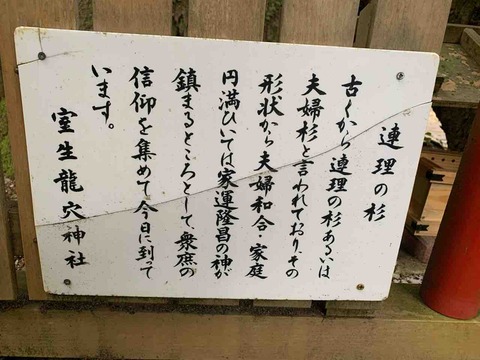 連理の杉
古くから連理の杉あるいは
夫婦杉と言われており、その
形状から夫婦和合・家庭
円満ひいては家運隆昌の神が
鎮まるところとして、衆庶の
信仰を集めて今日に到って
います。
室生龍穴神社